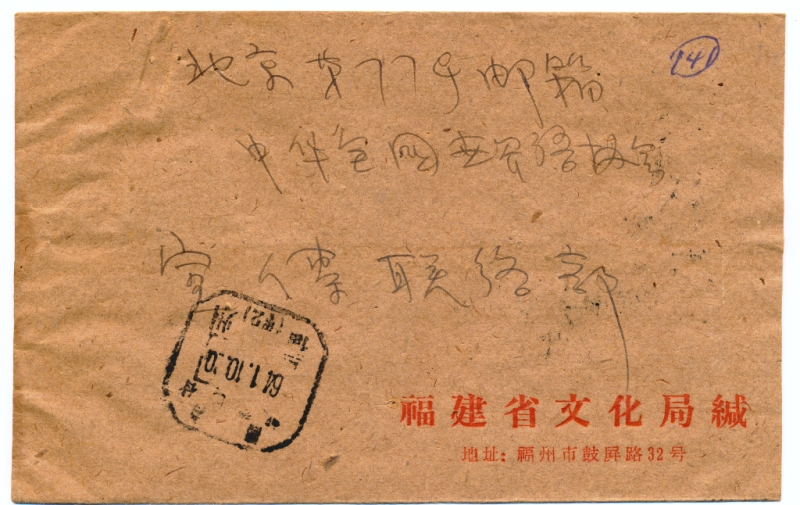 141
北京第77号邮箱
中华全国世界语协会
联络部
64.1.10.20
福建省文化局缄
地址：福州市鼓屏路32号